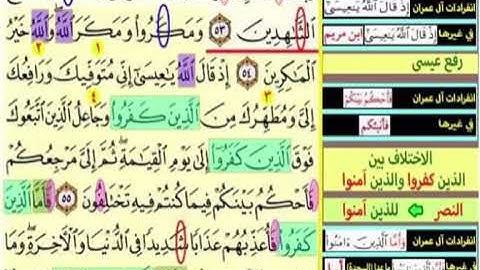 ٱلشَّٰهِدِينَ ٥٣ وَمَكَرُوا۟ وَمَكَرَ ٱللَّهُ وَٱللَّهُ خَيْرُ
١ ٢
ٱلْمَٰكِرِينَ ٥٤ إِذْ قَالَ ٱللَّهُ يَٰعِيسَىٰٓ إِنِّى مُتَوَفِّيكَ وَرَافِعُكَ
٣ ٤
إِلَىَّ وَمُطَهِّرُكَ مِنَ ٱلَّذِينَ كَفَرُوا۟ وَجَاعِلُ ٱلَّذِينَ ٱتَّبَعُوكَ
فَوْقَ ٱلَّذِينَ كَفَرُوٓا۟ إِلَىٰ يَوْمِ ٱلْقِيَٰمَةِ ثُمَّ إِلَىَّ مَرْجِعُكُمْ
فَأَحْكُمُ بَيْنَكُمْ فِيمَا كُنتُمْ فِيهِ تَخْتَلِفُونَ ٥٥ فَأَمَّا ٱلَّذِينَ
كَفَرُوا۟ فَأُعَذِّبُهُمْ عَذَابًا شَدِيدًا فِى ٱلدُّنْيَا وَٱلْءَاخِرَةِ وَمَا
انفرادات آل عمران إِذْ قَالَ ٱللَّهُ يَٰعِيسَىٰٓ
في غيرها إِذْ قَالَ ٱللَّهُ يَٰعِيسَى ابن مريم
رفع عيسى
انفرادات آل عمران فَأَحْكُمُ بَيْنَكُمْ
في غيرها فأنبئكم
الاختلاف بين
الذين كفروا والذين آمنوا
النصر للذين آمنوا
انفرادات آل عمران وَأَمَّا ٱلَّذِينَ ءَامَنُوا۟
في غيرها